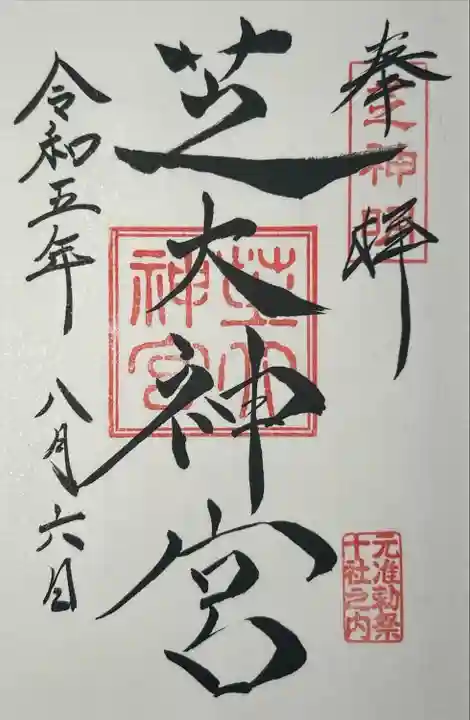 奉拝
芝神明
芝大神宮
芝大
神宮
令和五年
八月六日
元准勅祭
十社之内